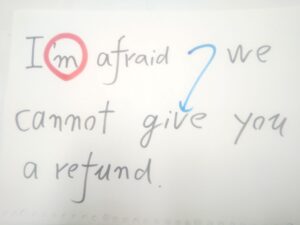 I'm afraid we
cannot give you
a refund.